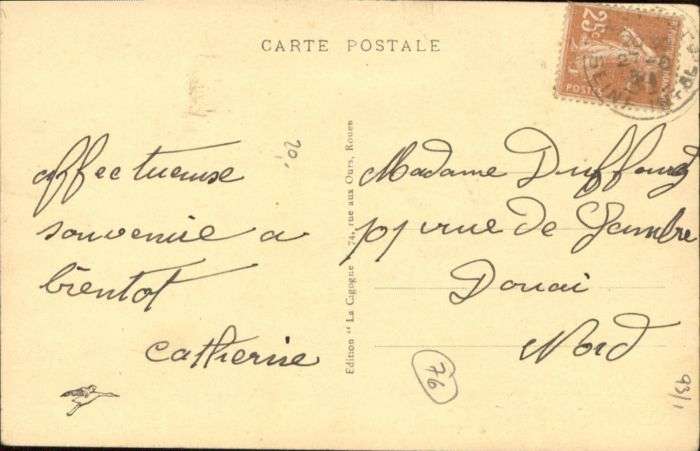 CARTE POSTALE
25c
POSTES
affectueuse
souvenir a
bientot
catherine
Edition "La Cigogne", 74, rue aux Ours, Rouen
Madame
rue de
Douai
Nord
76
93/1
20,